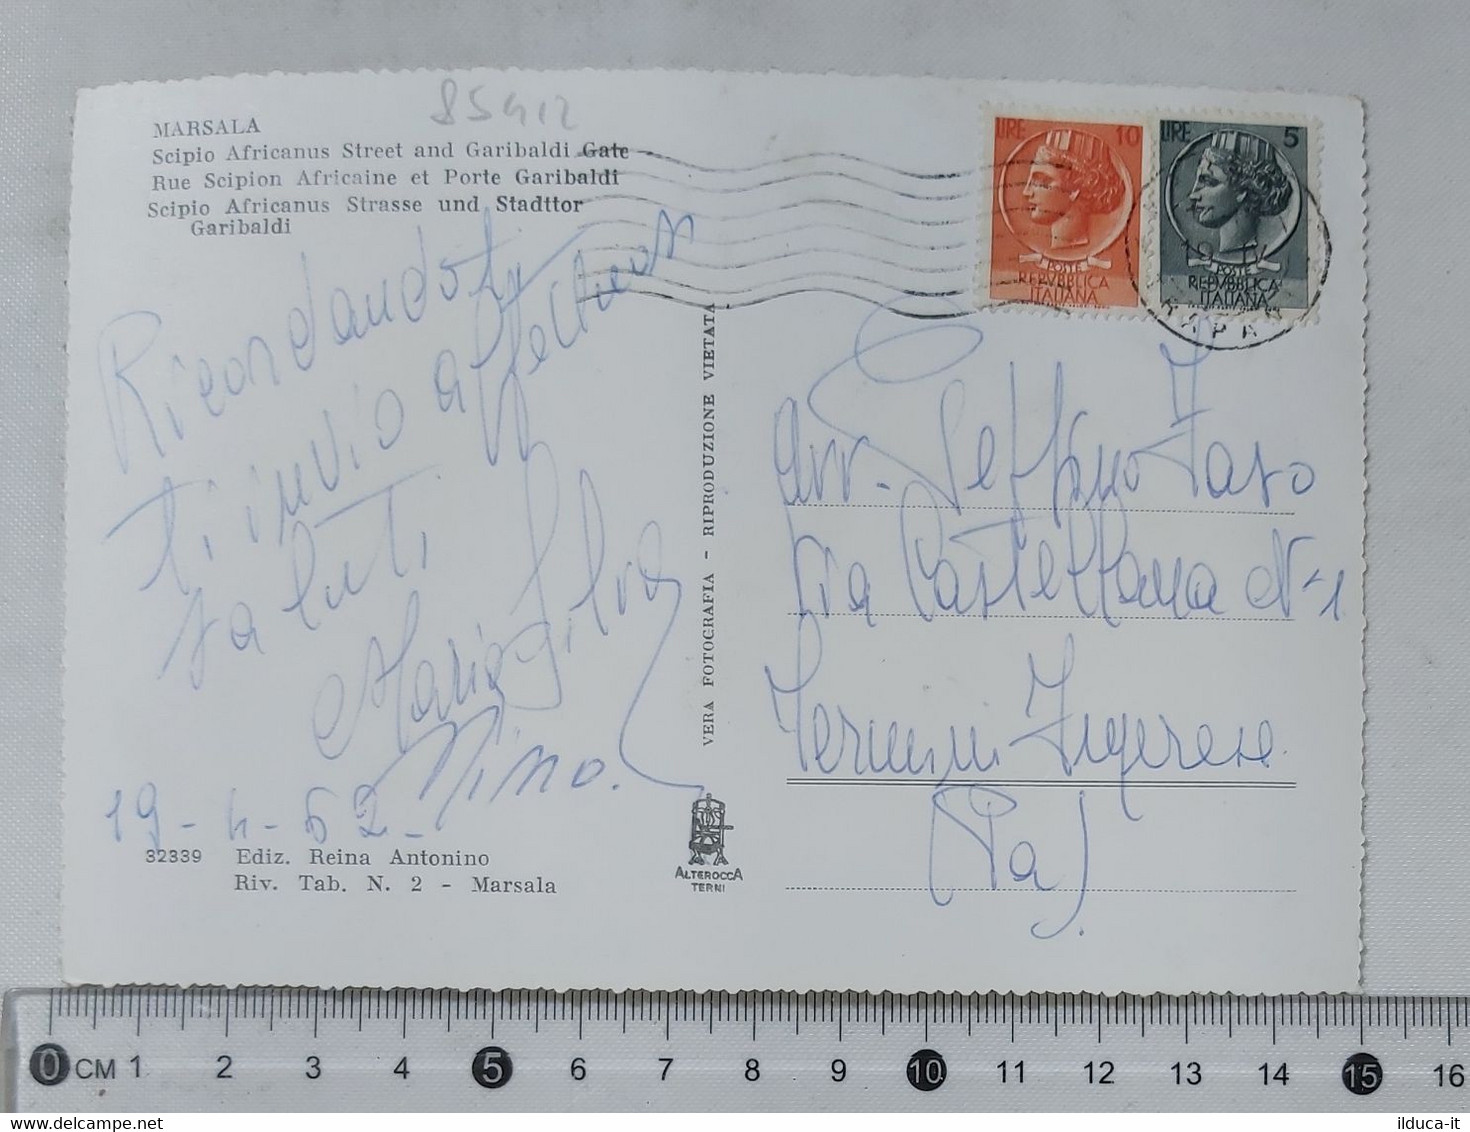 85412
MARSALA
Scipio Africanus Street and Garibaldi Gate
Rue Scipion Africaine et Porte Garibaldi
Scipio Africanus Strasse und Stadttor
Garibaldi
Ricordandoti
ti invio affettuosi
saluti
Mariasilvia
Nino.
19-4-62-
32339 Ediz. Reina Antonino
Riv. Tab. N. 2 - Marsala
VERA FOTOGRAFIA - RIPRODUZIONE VIETATA
ALTEROCCA
TERNI
LIRE 10
POSTE
REPVBBLICA
ITALIANA
LIRE 5
POSTE
REPVBBLICA
ITALIANA
19 IV
Avv. Peppino Faso
Via Castellana N-1
Termini Imerese
(Pa)
0 CM 1 2 3 4 5 6 7 8 9 10 11 12 13 14 15 16
ilduca-it